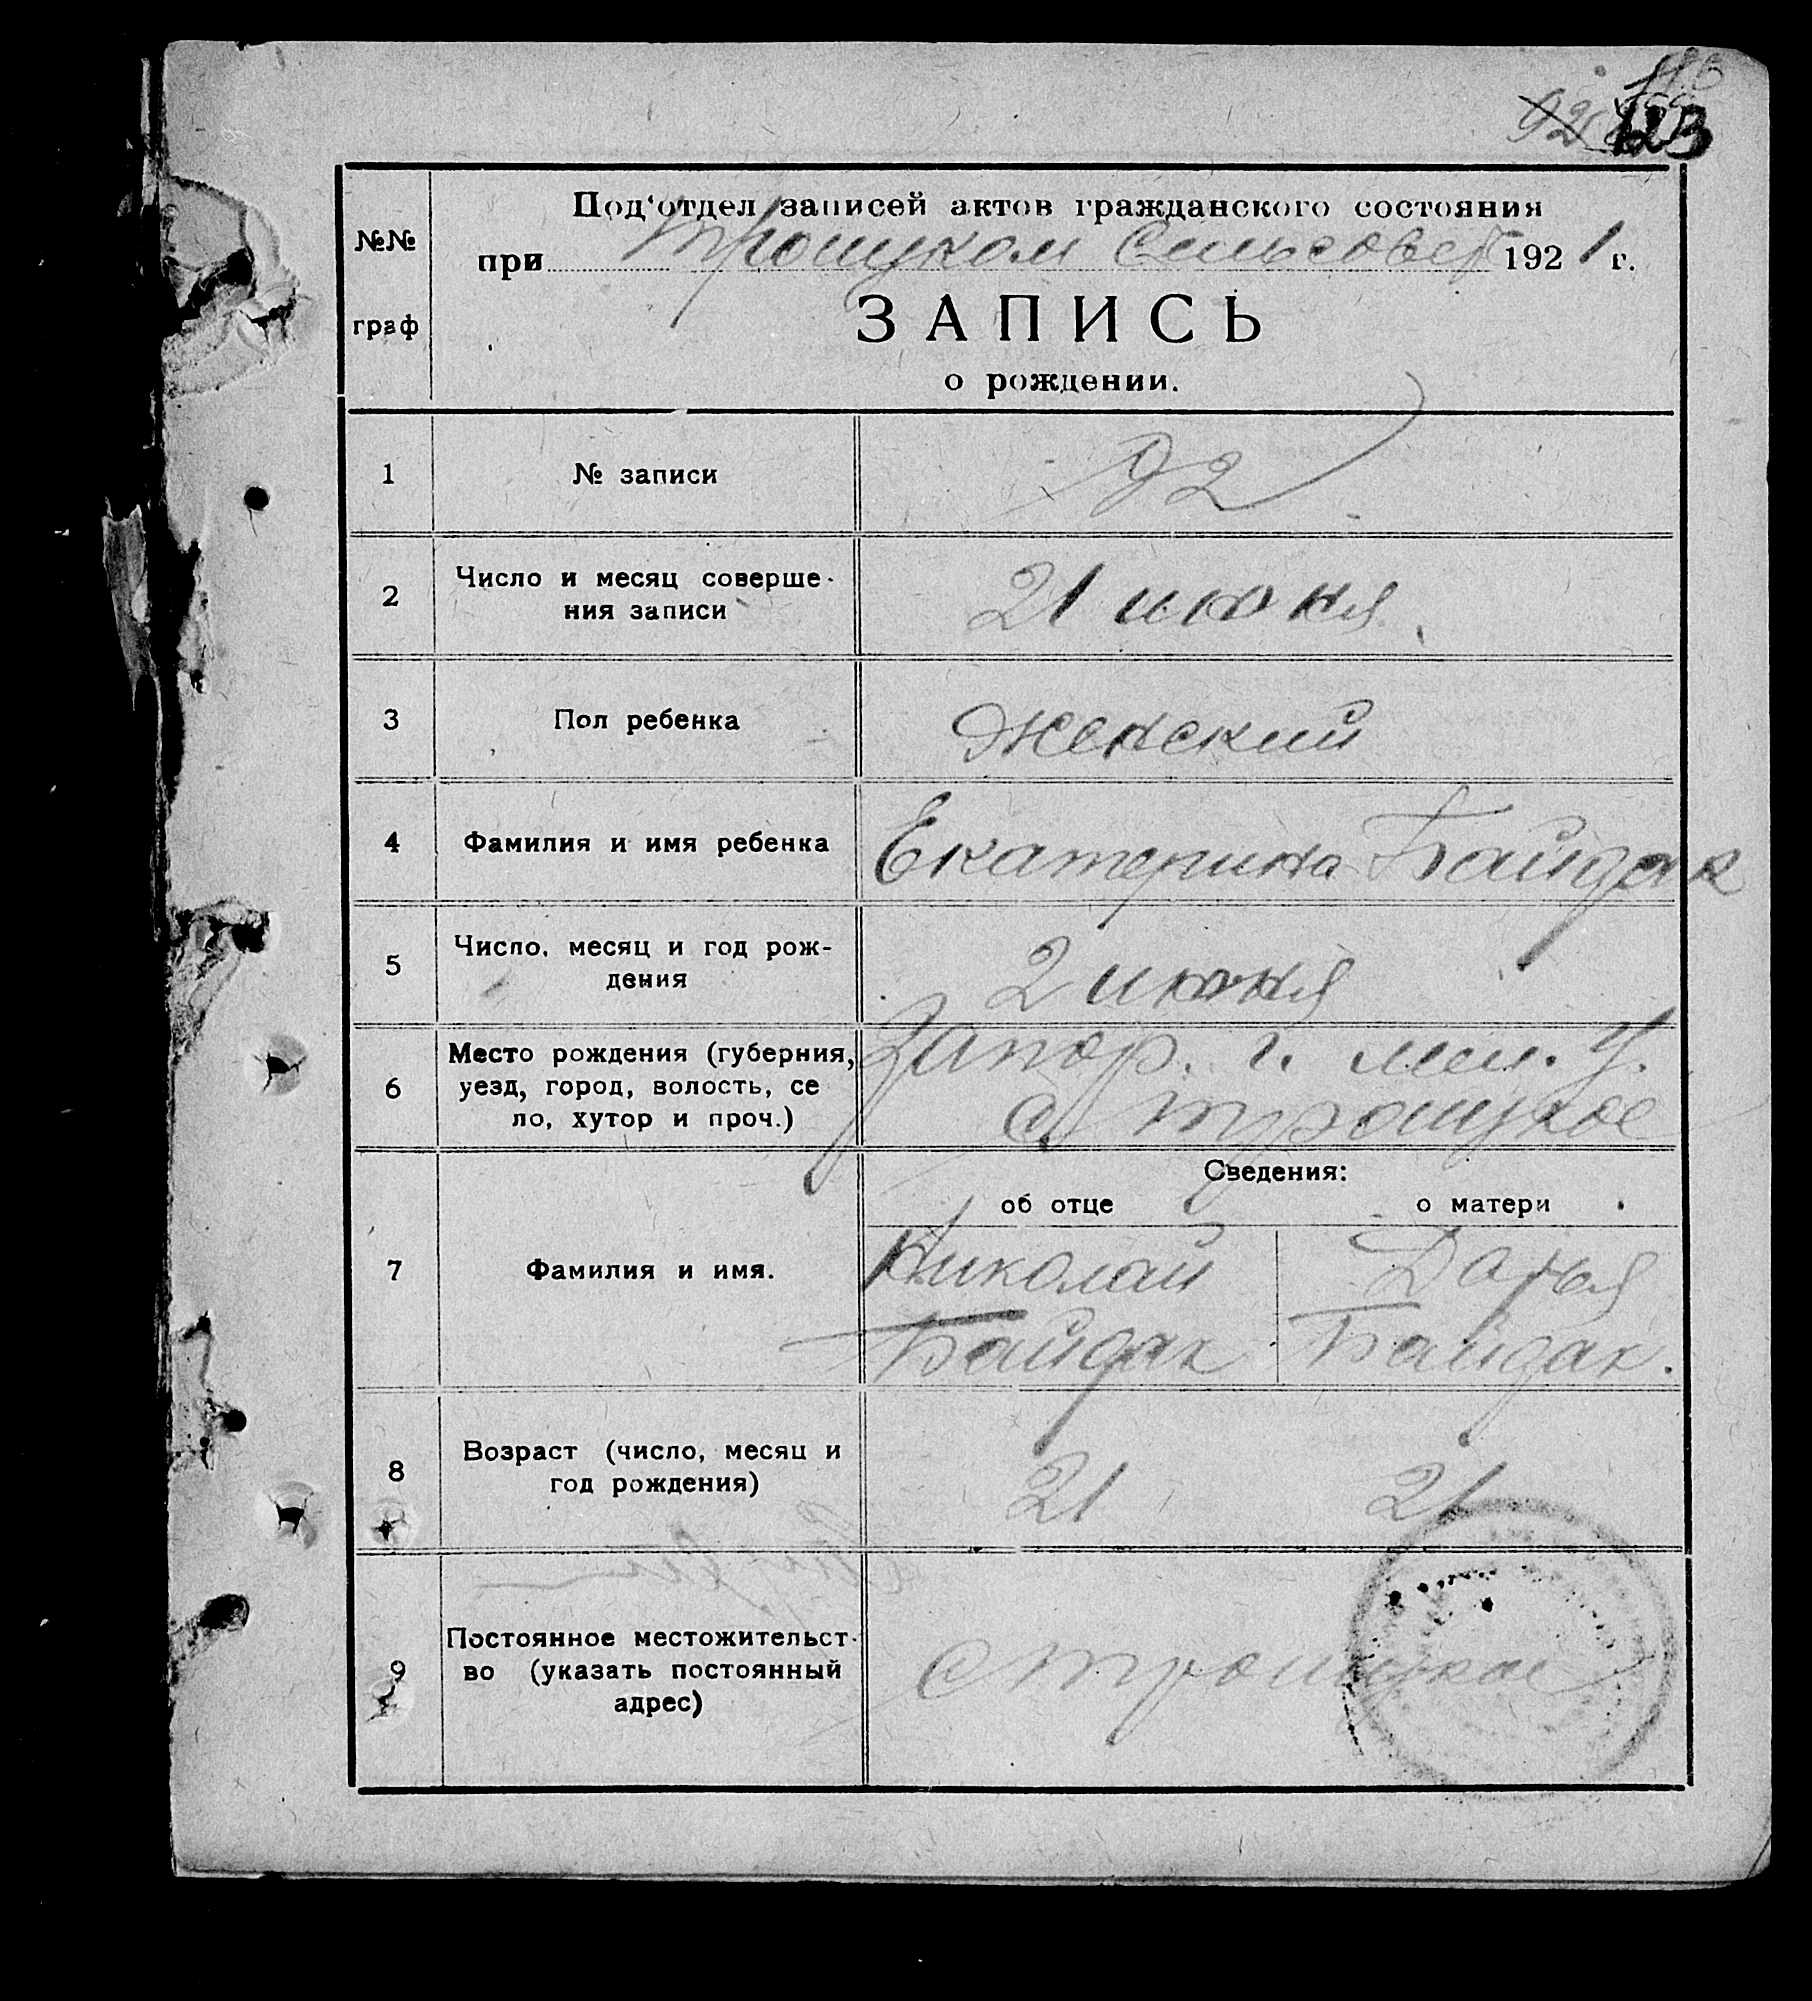 92 123
№№ граф
Под‘отдел записей актов гражданского состояния
при Троицком Сельсовет 1921 г.
ЗАПИСЬ
о рождении.
1 № записи 92
2 Число и месяц соверше-
ния записи 21 июня
3 Пол ребенка женский
4 Фамилия и имя ребенка Екатерина Байдак
5 Число, месяц и год рож-
дения 2 июня
6 Место рождения (губерния, Запор. г. мел. у.
уезд, город, волость, се
ло, хутор и проч.) с троицкое
Сведения:
об отце о матери
7 Фамилия и имя. Николай Дарья
Байдак Байдак.
8 Возраст (число, месяц и
год рождения) 21 21
9 Постоянное местожительст-
во (указать постоянный с троицкое
адрес)